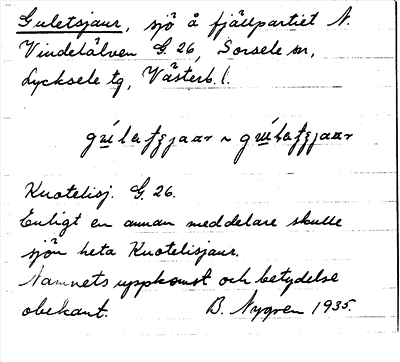 Guletsjaur, sjö å fjällpartiet N.
Vindelälven G. 26, Sorsele sn,
Lycksele tg, Västerb. l.
Knotelisj. G. 26.
Enligt en annan meddelare skulle
sjön heta Knotelisjaur.
Namnets uppkomst och betydelse
obekant. B. Nygren 1935.